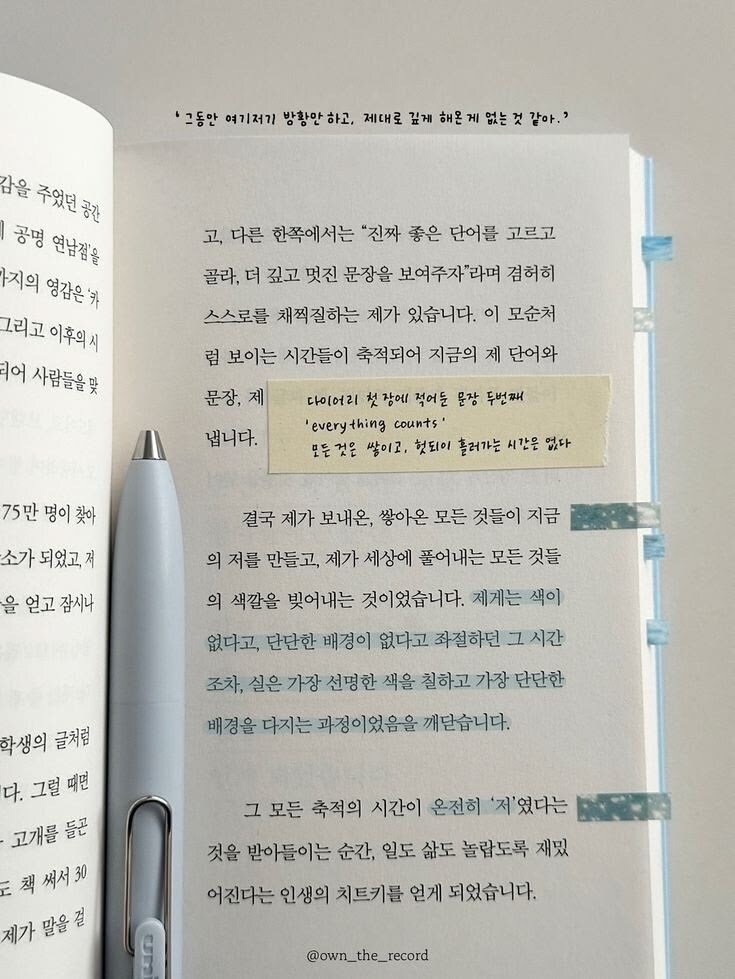 '그동안 여기저기 방황만 하고, 제대로 깊게 해온 게 없는 것 같아.'
감을 주었던 공간
공명 연남점'을
까지의 영감은 '카
그리고 이후의 시
되어 사람들을 맞
75만 명이 찾아
소가 되었고, 저
을 얻고 잠시나
학생의 글처럼
다. 그럴 때면
고개를 들곤
도 책 써서 30
제가 말을 걸
고, 다른 한쪽에서는 “진짜 좋은 단어를 고르고
골라, 더 깊고 멋진 문장을 보여주자”라며 겸허히
스스로를 채찍질하는 제가 있습니다. 이 모순처
럼 보이는 시간들이 축적되어 지금의 제 단어와
문장, 제
냅니다.
다이어리 첫 장에 적어둔 문장 두번째
'everything counts'
모든 것은 쌓이고, 헛되이 흘러가는 시간은 없다
결국 제가 보내온, 쌓아온 모든 것들이 지금
의 저를 만들고, 제가 세상에 풀어내는 모든 것들
의 색깔을 빚어내는 것이었습니다. 제게는 색이
없다고, 단단한 배경이 없다고 좌절하던 그 시간
조차, 실은 가장 선명한 색을 칠하고 가장 단단한
배경을 다지는 과정이었음을 깨닫습니다.
그 모든 축적의 시간이 온전히 ‘저’였다는
것을 받아들이는 순간, 일도 삶도 놀랍도록 재밌
어진다는 인생의 치트키를 얻게 되었습니다.
uni
@own_the_record